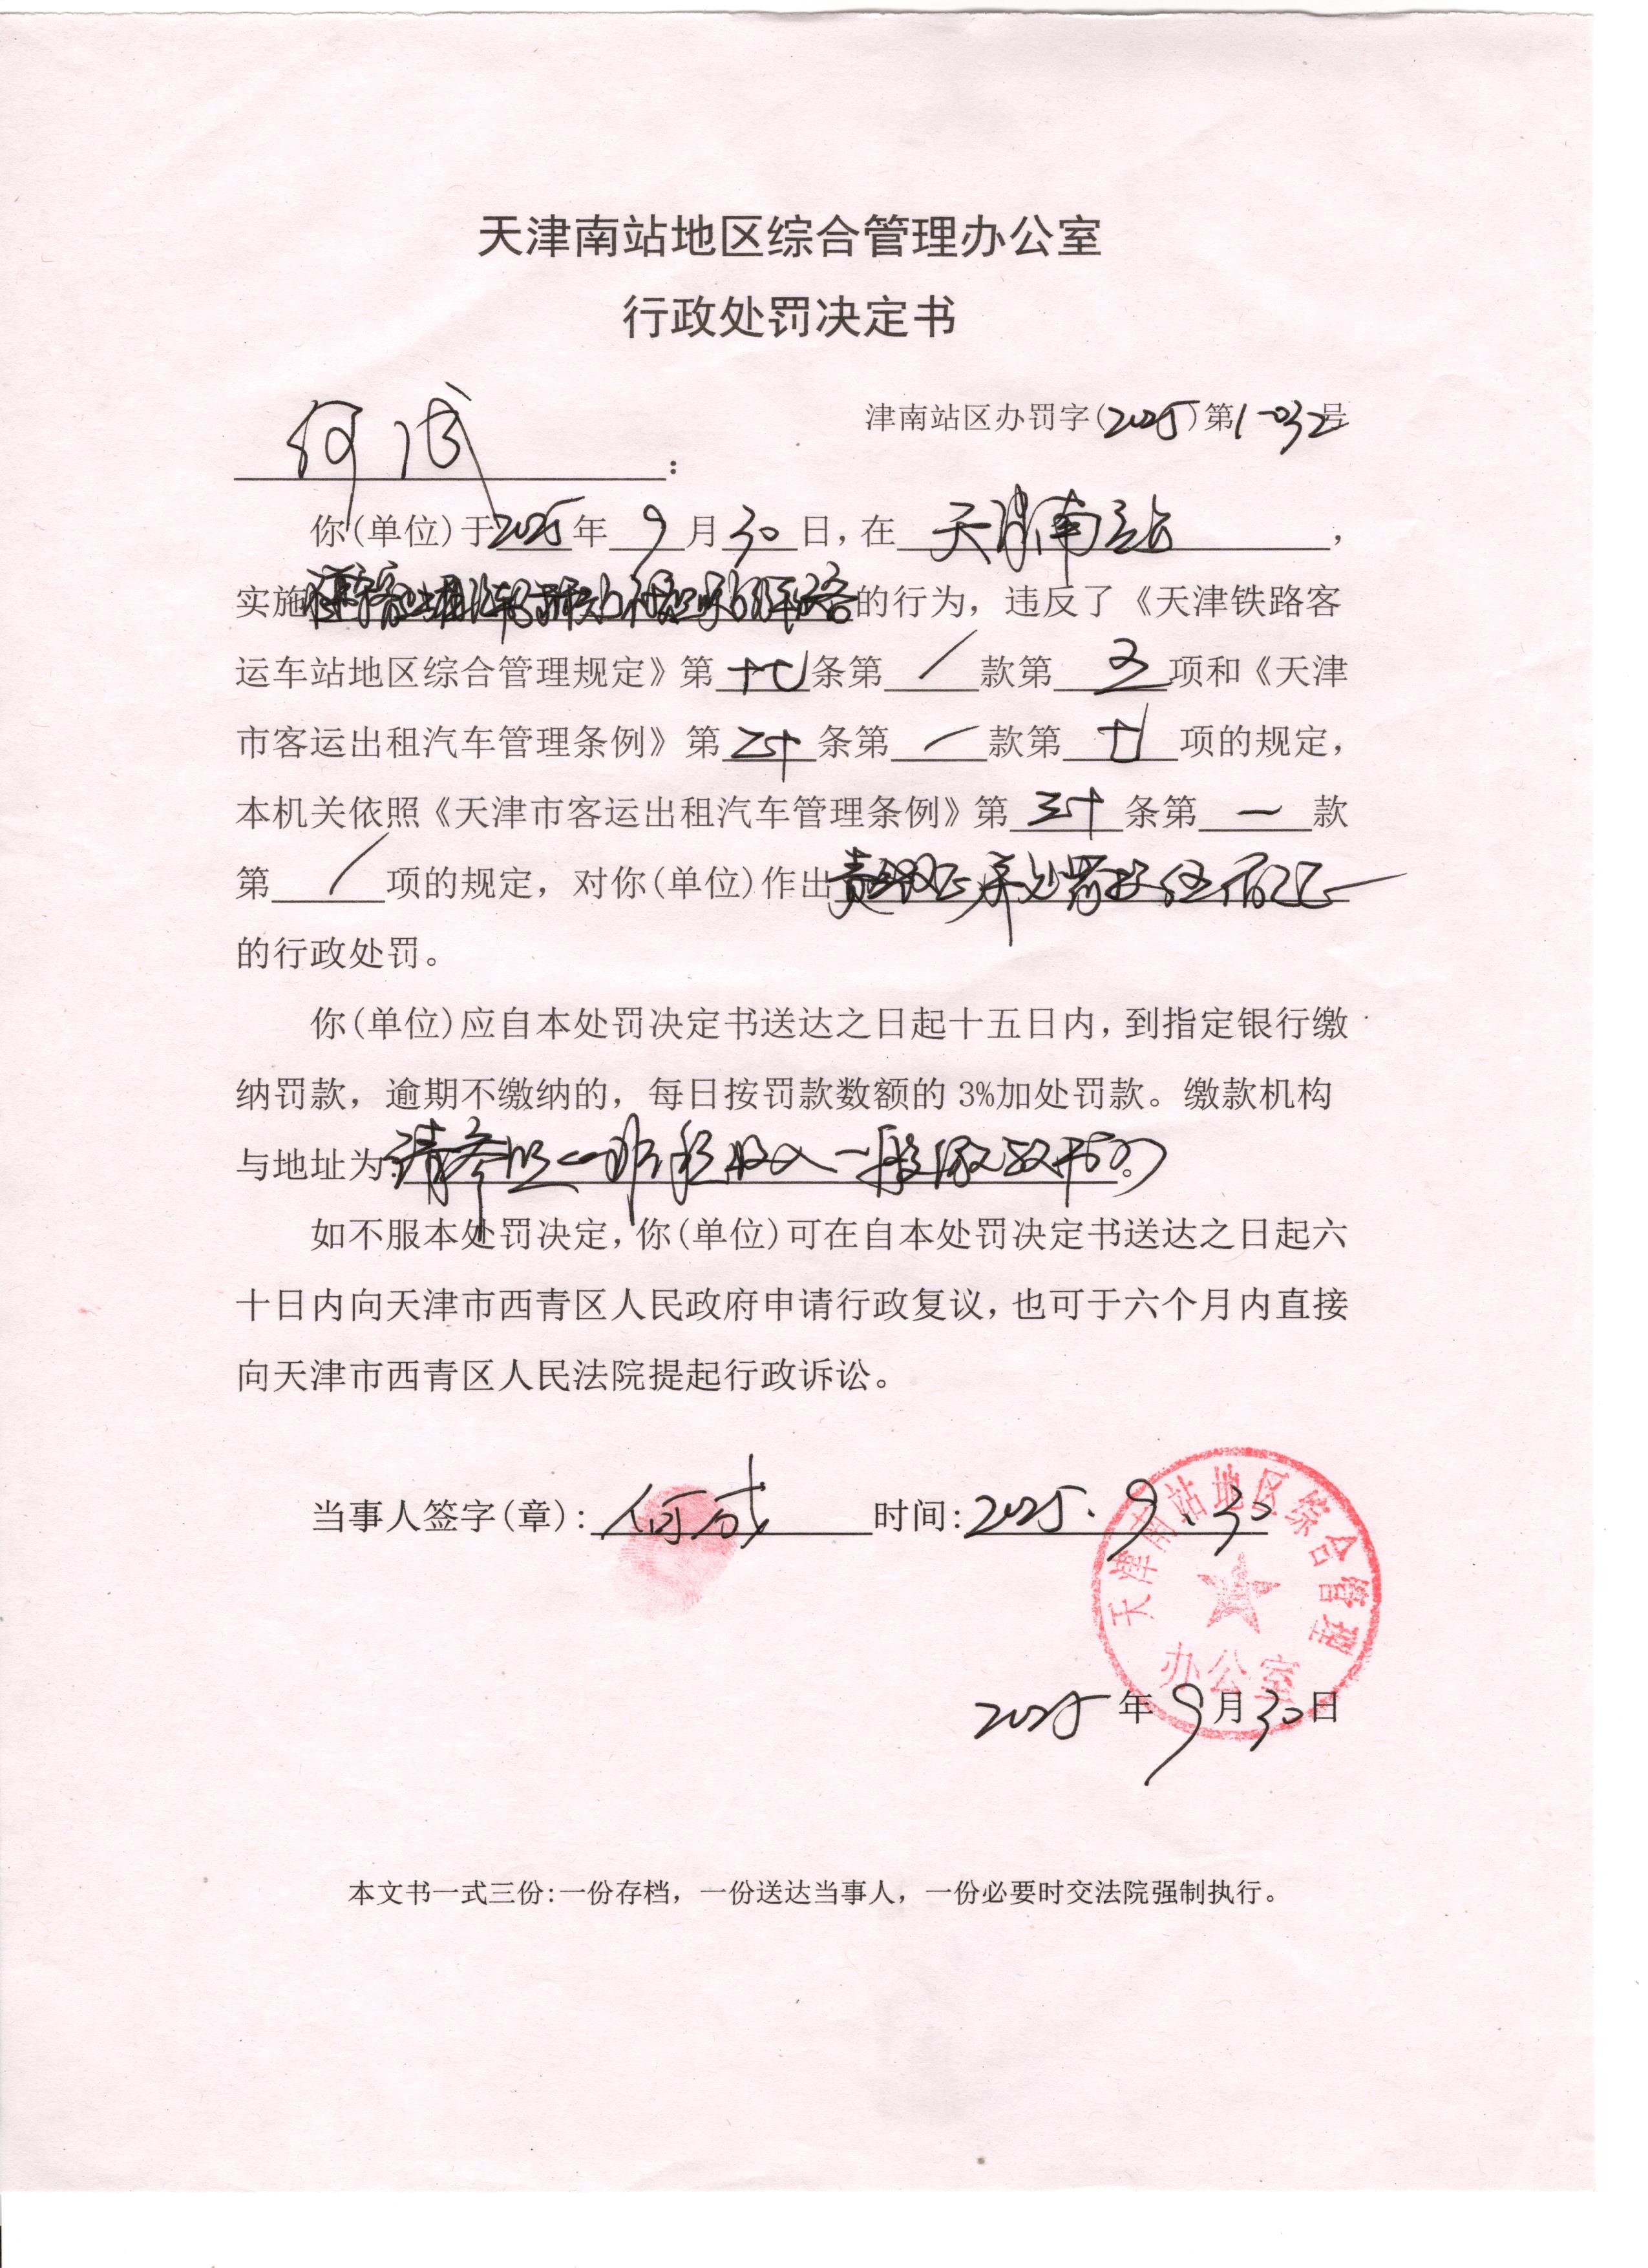 天津南站地区综合管理办公室
行政处罚决定书
津南站区办罚字(2025)第1-032号
何成:
你(单位)于2025年9月30日,在天津南站,
实施的行为,违反了《天津铁路客
运车站地区综合管理规定》第十七条第/款第五项和《天津
市客运出租汽车管理条例》第二十条第一款第十七项的规定,
本机关依照《天津市客运出租汽车管理条例》第三十条第一款
第/项的规定,对你(单位)作出责令改正,并处罚款伍佰元
的行政处罚。
你(单位)应自本处罚决定书送达之日起十五日内,到指定银行缴
纳罚款,逾期不缴纳的,每日按罚款数额的3%加处罚款。缴款机构
与地址为:请参照《非税收入一般缴款书》。
如不服本处罚决定,你(单位)可在自本处罚决定书送达之日起六
十日内向天津市西青区人民政府申请行政复议,也可于六个月内直接
向天津市西青区人民法院提起行政诉讼。
当事人签字(章):何成 时间:2025.9.30
天津南站地区综合管理
办公室
2025年9月30日
本文书一式三份:一份存档,一份送达当事人,一份必要时交法院强制执行。